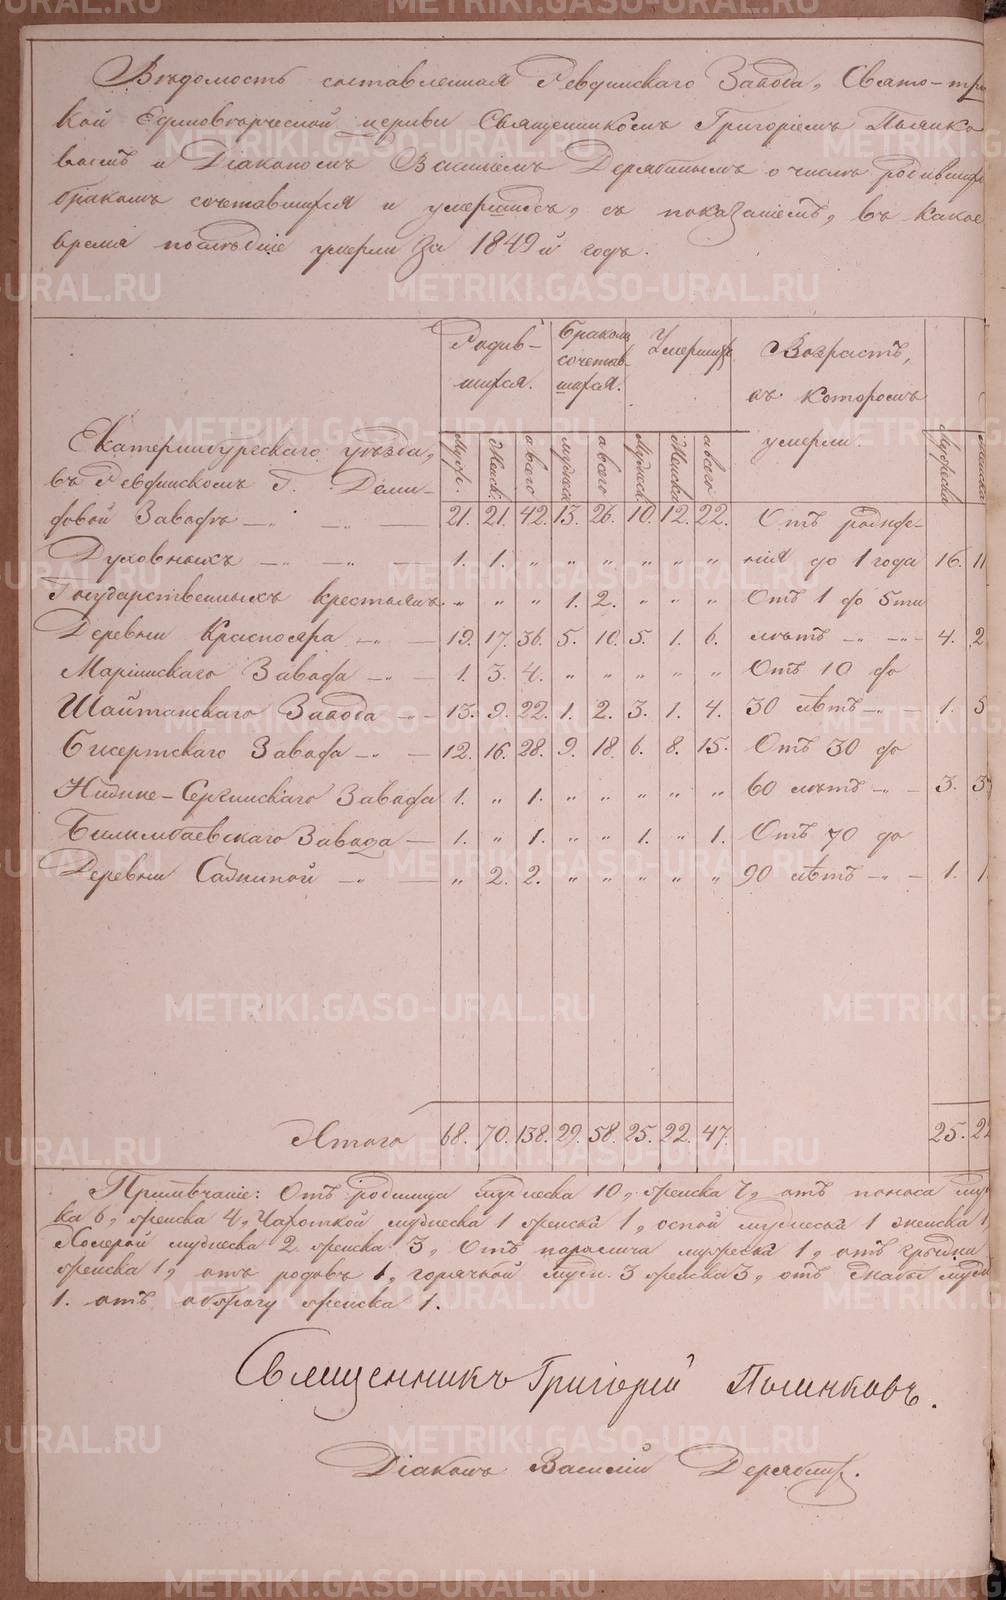 Вѣдомость составленная Ревдинскаго Завода, Свято-тро
кой Единовѣрческой церкви Священникомъ Григоріемъ Пьянко
вымъ и Діакономъ Василіемъ Дерябинымъ о числѣ родившихъ
бракомъ сочетавшихся и умершихъ, съ показаніемъ, въ какое
время послѣдніе умерли за 1849й годъ.
Родив- Бракомъ Умершихъ Возрастъ,
шихся. сочетав- въ которомъ
шихся. умерли.
Муж. Женск. авсего мужеска авсего Мужеска Женска авсего Мужеска Женска
Екатеринбургскаго уѣзда,
въ Ревдинскомъ Г. Деми-
довой Заводѣ — 21. 21. 42. 13. 26. 10. 12. 22. Отъ рожде-
Духовныхъ — 1. 1. „ „ „ „ „ „ нія до 1 года 16. 11
Государственныхъ крестьянъ. „ „ „ 1. 2. „ „ „ Отъ 1 до 5ти
Деревни Краснояра — 19. 17. 36. 5. 10. 5. 1. 6. лѣтъ — 4. 2
Маріинскаго Завода — 1. 3. 4. „ „ „ „ „ Отъ 10 до
Шайтанскаго Завода — 13. 9. 22. 1. 2. 3. 1. 4. 30 лѣтъ — 1. 5
Бисертскаго Завода — 12. 16. 28. 9. 18. 6. 8. 15. Отъ 30 до
Нижне-Сергинскаго Завода 1. „ 1. „ „ „ „ „ 60 лѣтъ — 3. 3
Билимбаевскаго Завода — 1. „ 1. „ „ 1. „ 1. Отъ 70 до
Деревни Сажиной — „ 2. 2. „ „ „ „ „ 90 лѣтъ — 1. 1
Итого 68. 70. 138. 29. 58. 25. 22. 47. 25. 22
Примѣчаніе: Отъ родимца мужеска 10, женска 7, отъ поноса муже
ка 6, женска 4, Чахоткой мужеска 1 женска 1, оспой мужеска 1 женска 1,
Холерой мужеска 2 женска 3, Отъ паралича мужеска 1, отъ грыжи
женска 1, отъ родовъ 1, горячкой муж. 3 женска 3, отъ жабы муж
1. отъ женска 1.
Священникъ Григорій Пьянковъ.
Діаконъ Василій Дерябинъ.
METRIKI.GASO-URAL.RU